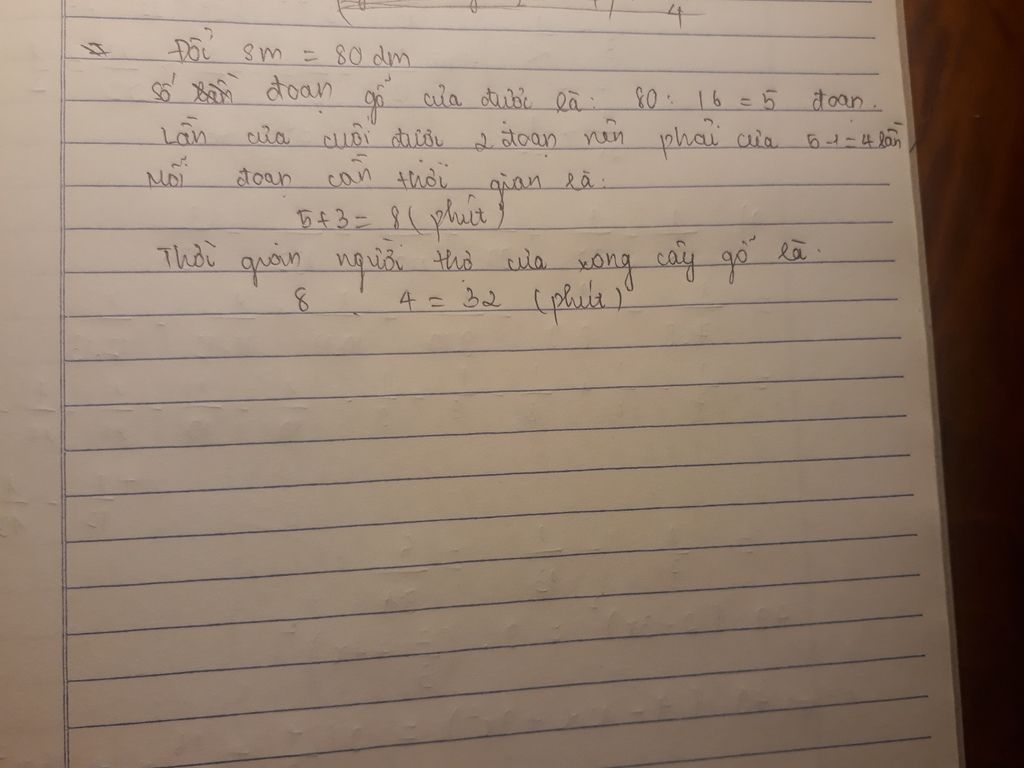 4
Đổi 8m = 80 dm
Số đoạn gỗ cưa được là: 80 : 16 = 5 đoạn.
Lần cưa cuối được 2 đoạn nên phải cưa 5-1=4 lần
Mỗi đoạn cần thời gian là:
5+3= 8 ( phút )
Thời gian người thợ cưa xong cây gỗ là.
8 4 = 32 (phút)